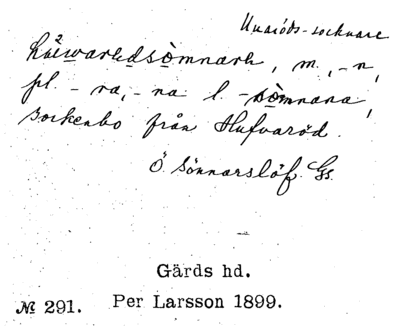 Unaröds-socknare
hǘewarødsòmnarh, m., -n,
pl. -ra, -na l. -sòmnana,
sockenbo från Hufvaröd.
Ö. Sönnarslöf. Gs.
Gärds hd.
№ 291. Per Larsson 1899.